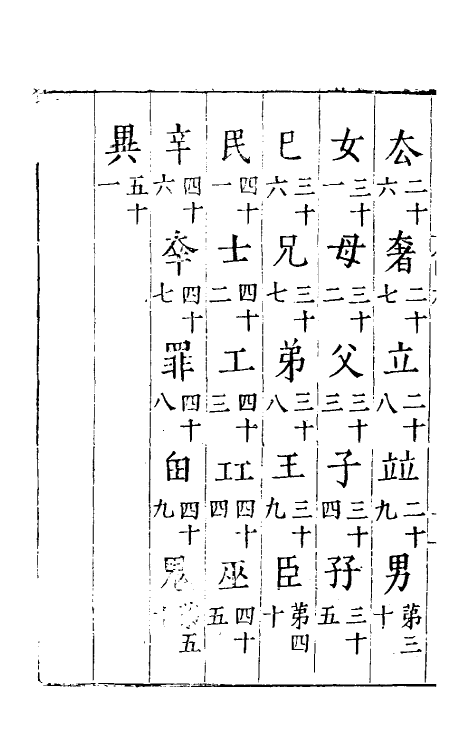 厺二十六　奢二十七　立二十八　竝二十九　男第三十
女三十一　母三十二　父三十三　子三十四　孖三十五
巳三十六　兄三十七　弟三十八　王三十九　臣第四十
民四十一　士四十二　工四十三　𢀜四十四　巫四十五
辛四十六　㚔四十七　罪四十八　甶四十九　鬼第五十
異五十一